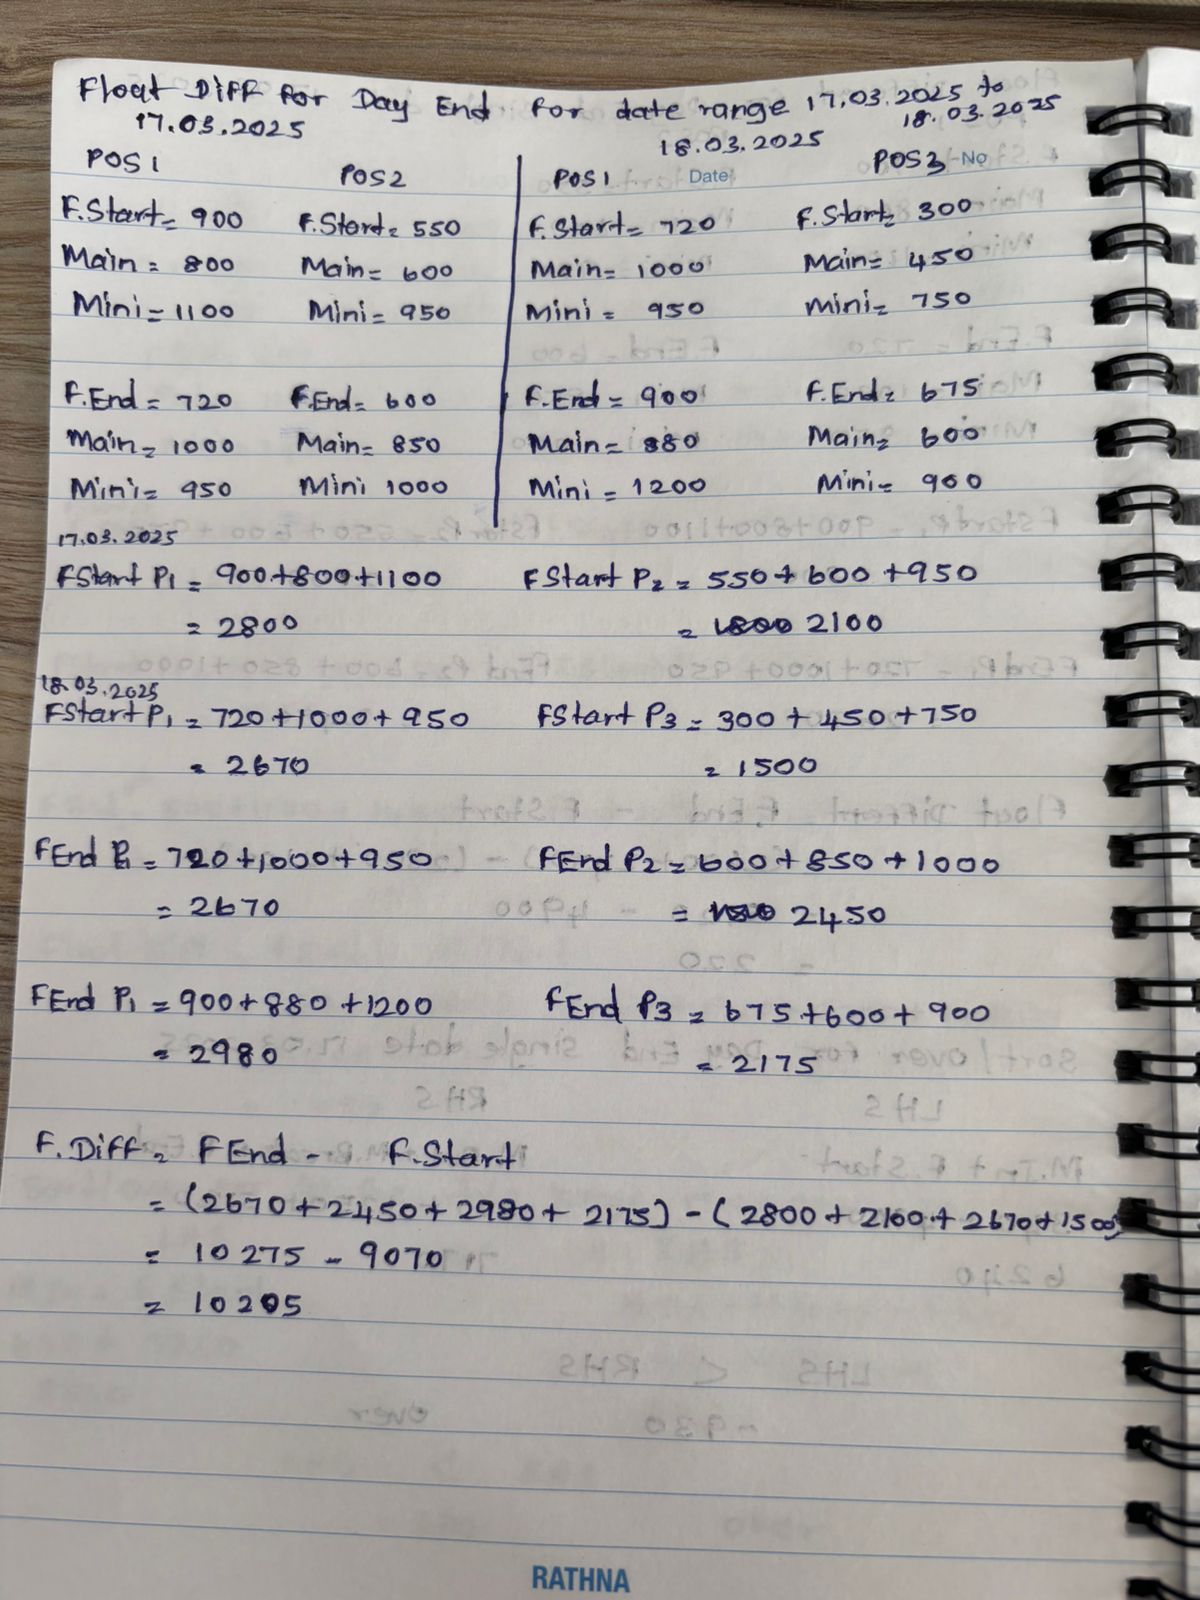 Float Diff for Day End for date range 17.03.2025 to
17.03.2025 18.03.2025 18.03.2025
POS1 POS2 POS1 Date POS3 No
F.Start= 900 F.Start= 550 F.Start= 720 F.Start= 300
Main= 800 Main= 600 Main= 1000 Main= 450
Mini= 1100 Mini= 950 Mini= 950 Mini= 750
F.End= 720 F.End= 600 F.End= 900 F.End= 675
Main= 1000 Main= 850 Main= 880 Main= 600
Mini= 950 Mini 1000 Mini= 1200 Mini= 900
17.03.2025
FStart P1 = 900+800+1100 FStart P2 = 550+600+950
= 2800 = 2100
18.03.2025
FStart P1 = 720+1000+950 FStart P3 = 300+450+750
= 2670 = 1500
FEnd P1 = 720+1000+950 FEnd P2 = 600+850+1000
= 2670 = 2450
FEnd P1 = 900+880+1200 FEnd P3 = 675+600+900
= 2980 = 2175
F.Diff= FEnd - F.Start
= (2670+2450+2980+2175) - (2800+2100+2670+1500)
= 10275 - 9070
= 10205
RATHNA